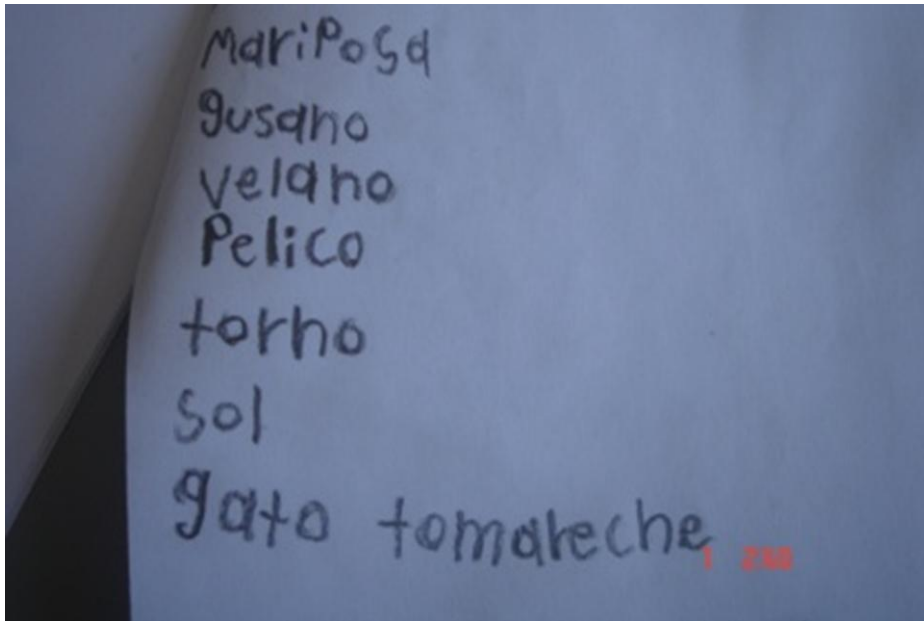 MariPosa
gusano
velano
Pelico
torno
sol
gato tomaleche
1 260